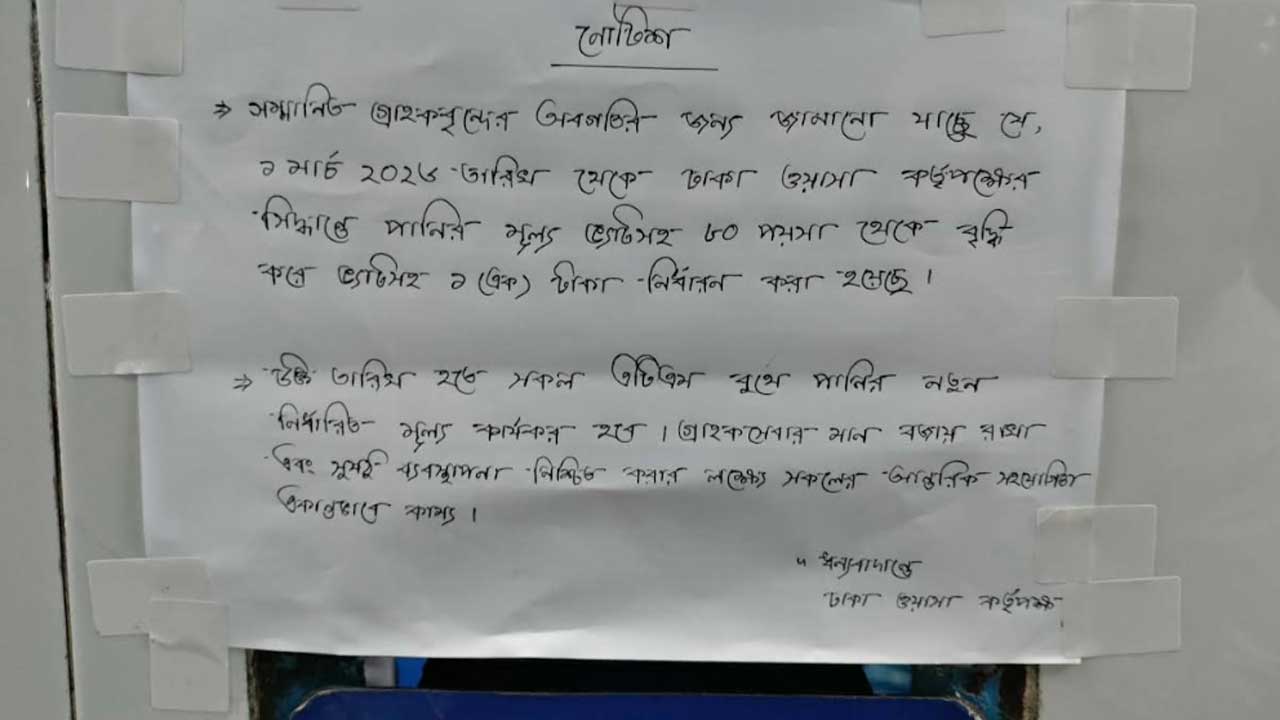 নোটিশ
⇒ সম্মানিত গ্রাহকবৃন্দের অবগতির জন্য জানানো যাচ্ছে যে,
১ মার্চ ২০২৬ তারিখ থেকে ঢাকা ওয়াসা কর্তৃপক্ষের
সিদ্ধান্তে পানির মূল্য ভ্যাটসহ ৮০ পয়সা থেকে বৃদ্ধি
করে ভ্যাটসহ ১ (এক) টাকা নির্ধারন করা হয়েছে।
⇒ উক্ত তারিখ হতে সকল এটিএম বুথে পানির নতুন
নির্ধারিত মূল্য কার্যকর হবে। গ্রাহকসেবার মান বজায় রাখা
এবং সুষ্ঠু ব্যবস্থাপনা নিশ্চিত করার লক্ষ্যে সকলের আন্তরিক সহযোগিতা
একান্তভাবে কাম্য।
ধন্যবাদান্তে
ঢাকা ওয়াসা কর্তৃপক্ষ